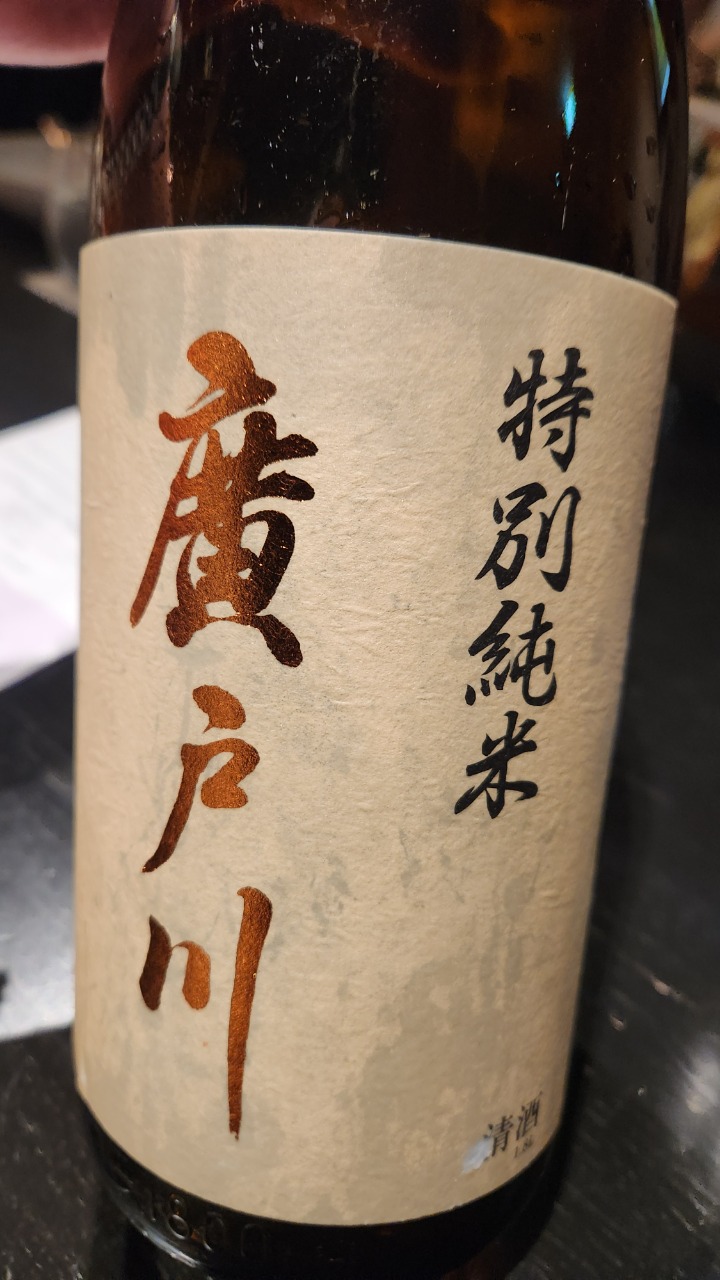 特別純米
廣戸川
清酒
1.8L
1800